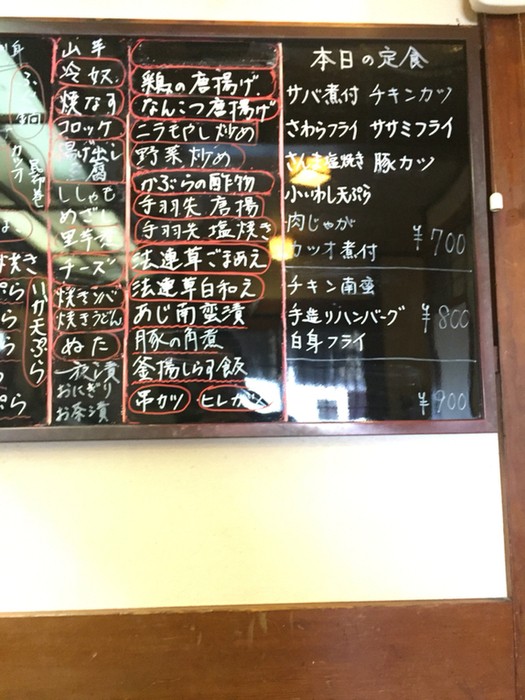 本日の定食
サバ煮付 チキンカツ
さわらフライ ササミフライ
さんま塩焼き 豚カツ
小いわし天ぷら
肉じゃが
カツオ煮付 ¥700
チキン南蛮
手造りハンバーグ ¥800
白身フライ
¥900
鶏の唐揚げ
なんこつ唐揚げ
ニラモやし炒め
野菜炒め
かぶらの酢物
手羽先 唐揚
手羽先 塩焼き
法連草ごまあえ
法連草白和え
あじ南蛮漬
豚の角煮
釜揚しらす飯
串カツ ヒレカツ
山芋
冷奴
焼なす
コロッケ
揚げ出し
豆腐
ししゃも
めざし
里芋煮
チーズ
焼きソバ
焼きうどん
ぬた
一夜漬
おにぎり
お茶漬
昆布巻
カツオ
いか天ぷら
焼き
ぷら
ぷら